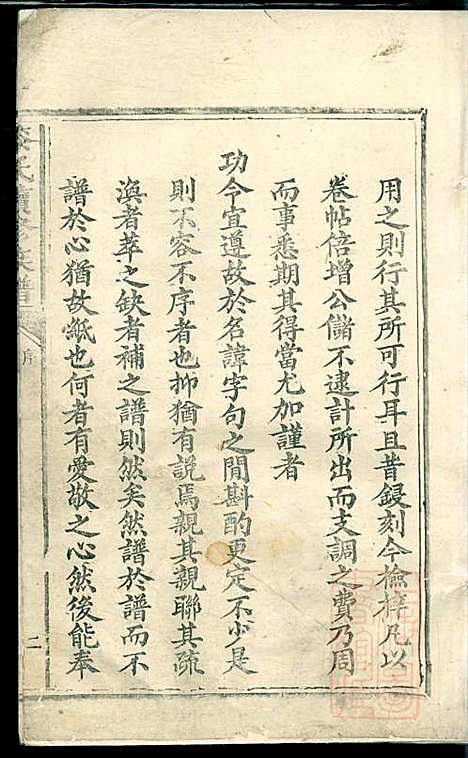 用之則行其所可行耳且昔鋟刻今檢梓凡以
卷帖倍增公儲不逮計所出而支調之費乃周
而事悉期其得當尤加謹者
功令宜遵故於名諱字句之間斟酌更定不少是
則不容不序者也抑猶有說焉親其親聯其疏
渙者萃之缺者補之譜則然矣然譜於譜而不
譜於心猶故紙也何者有愛敬之心然後能奉
氏續修族譜
序
二